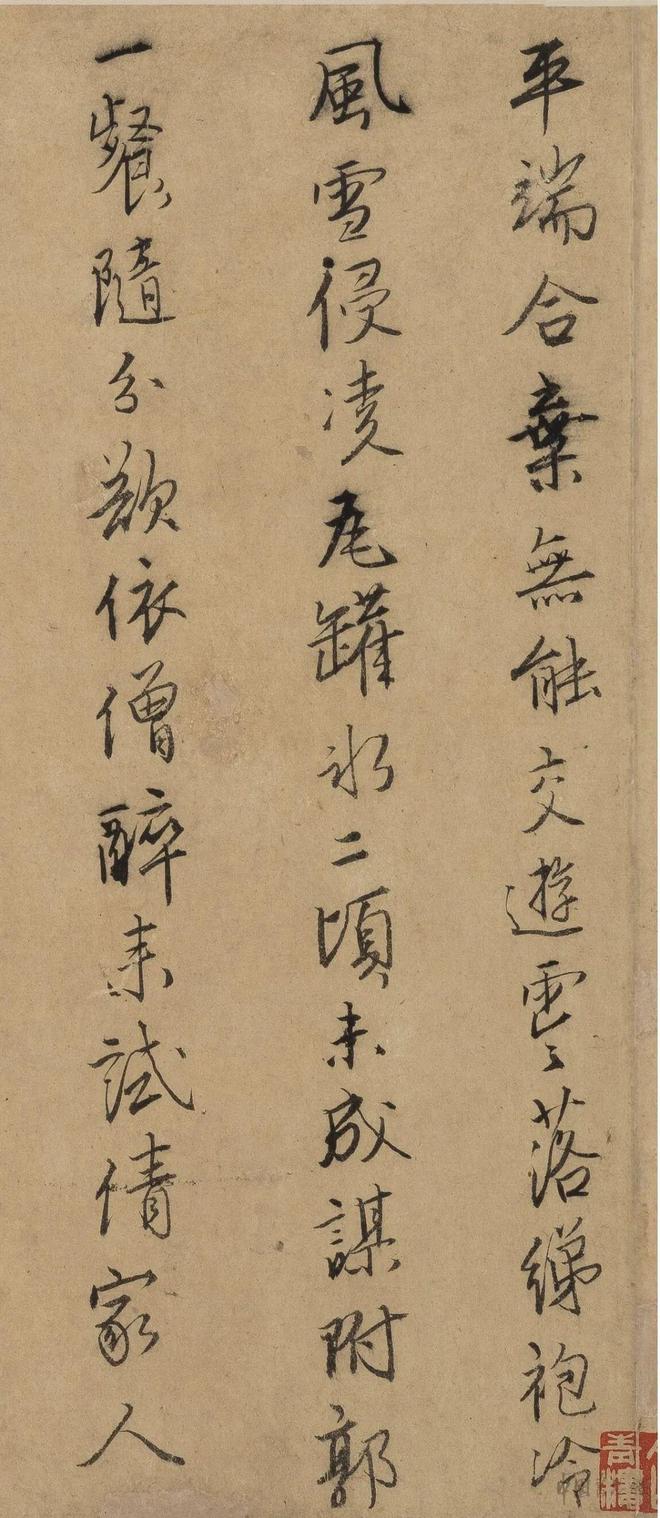 平端合棄無能交遊雲落綈袍冷
風雪侵凌瓦罐冰二頃未成謀附郭
一餐隨分欲依僧醉來試倩家人